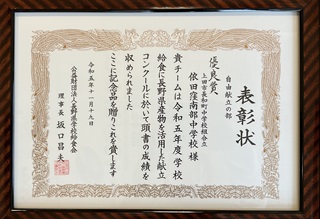 表彰状
自由献立の部
優良賞
上田市長和町中学校組合立
依田窪南部中学校 様
貴チームは令和五年度 学校
給食に長野県産物を活用した献立
コンクールに於いて頭書の成績を
収められました
ここに記念品を贈りこれを賞します
令和五年十一月十九日
公益財団法人長野県学校給食会
理事長 坂口昌夫